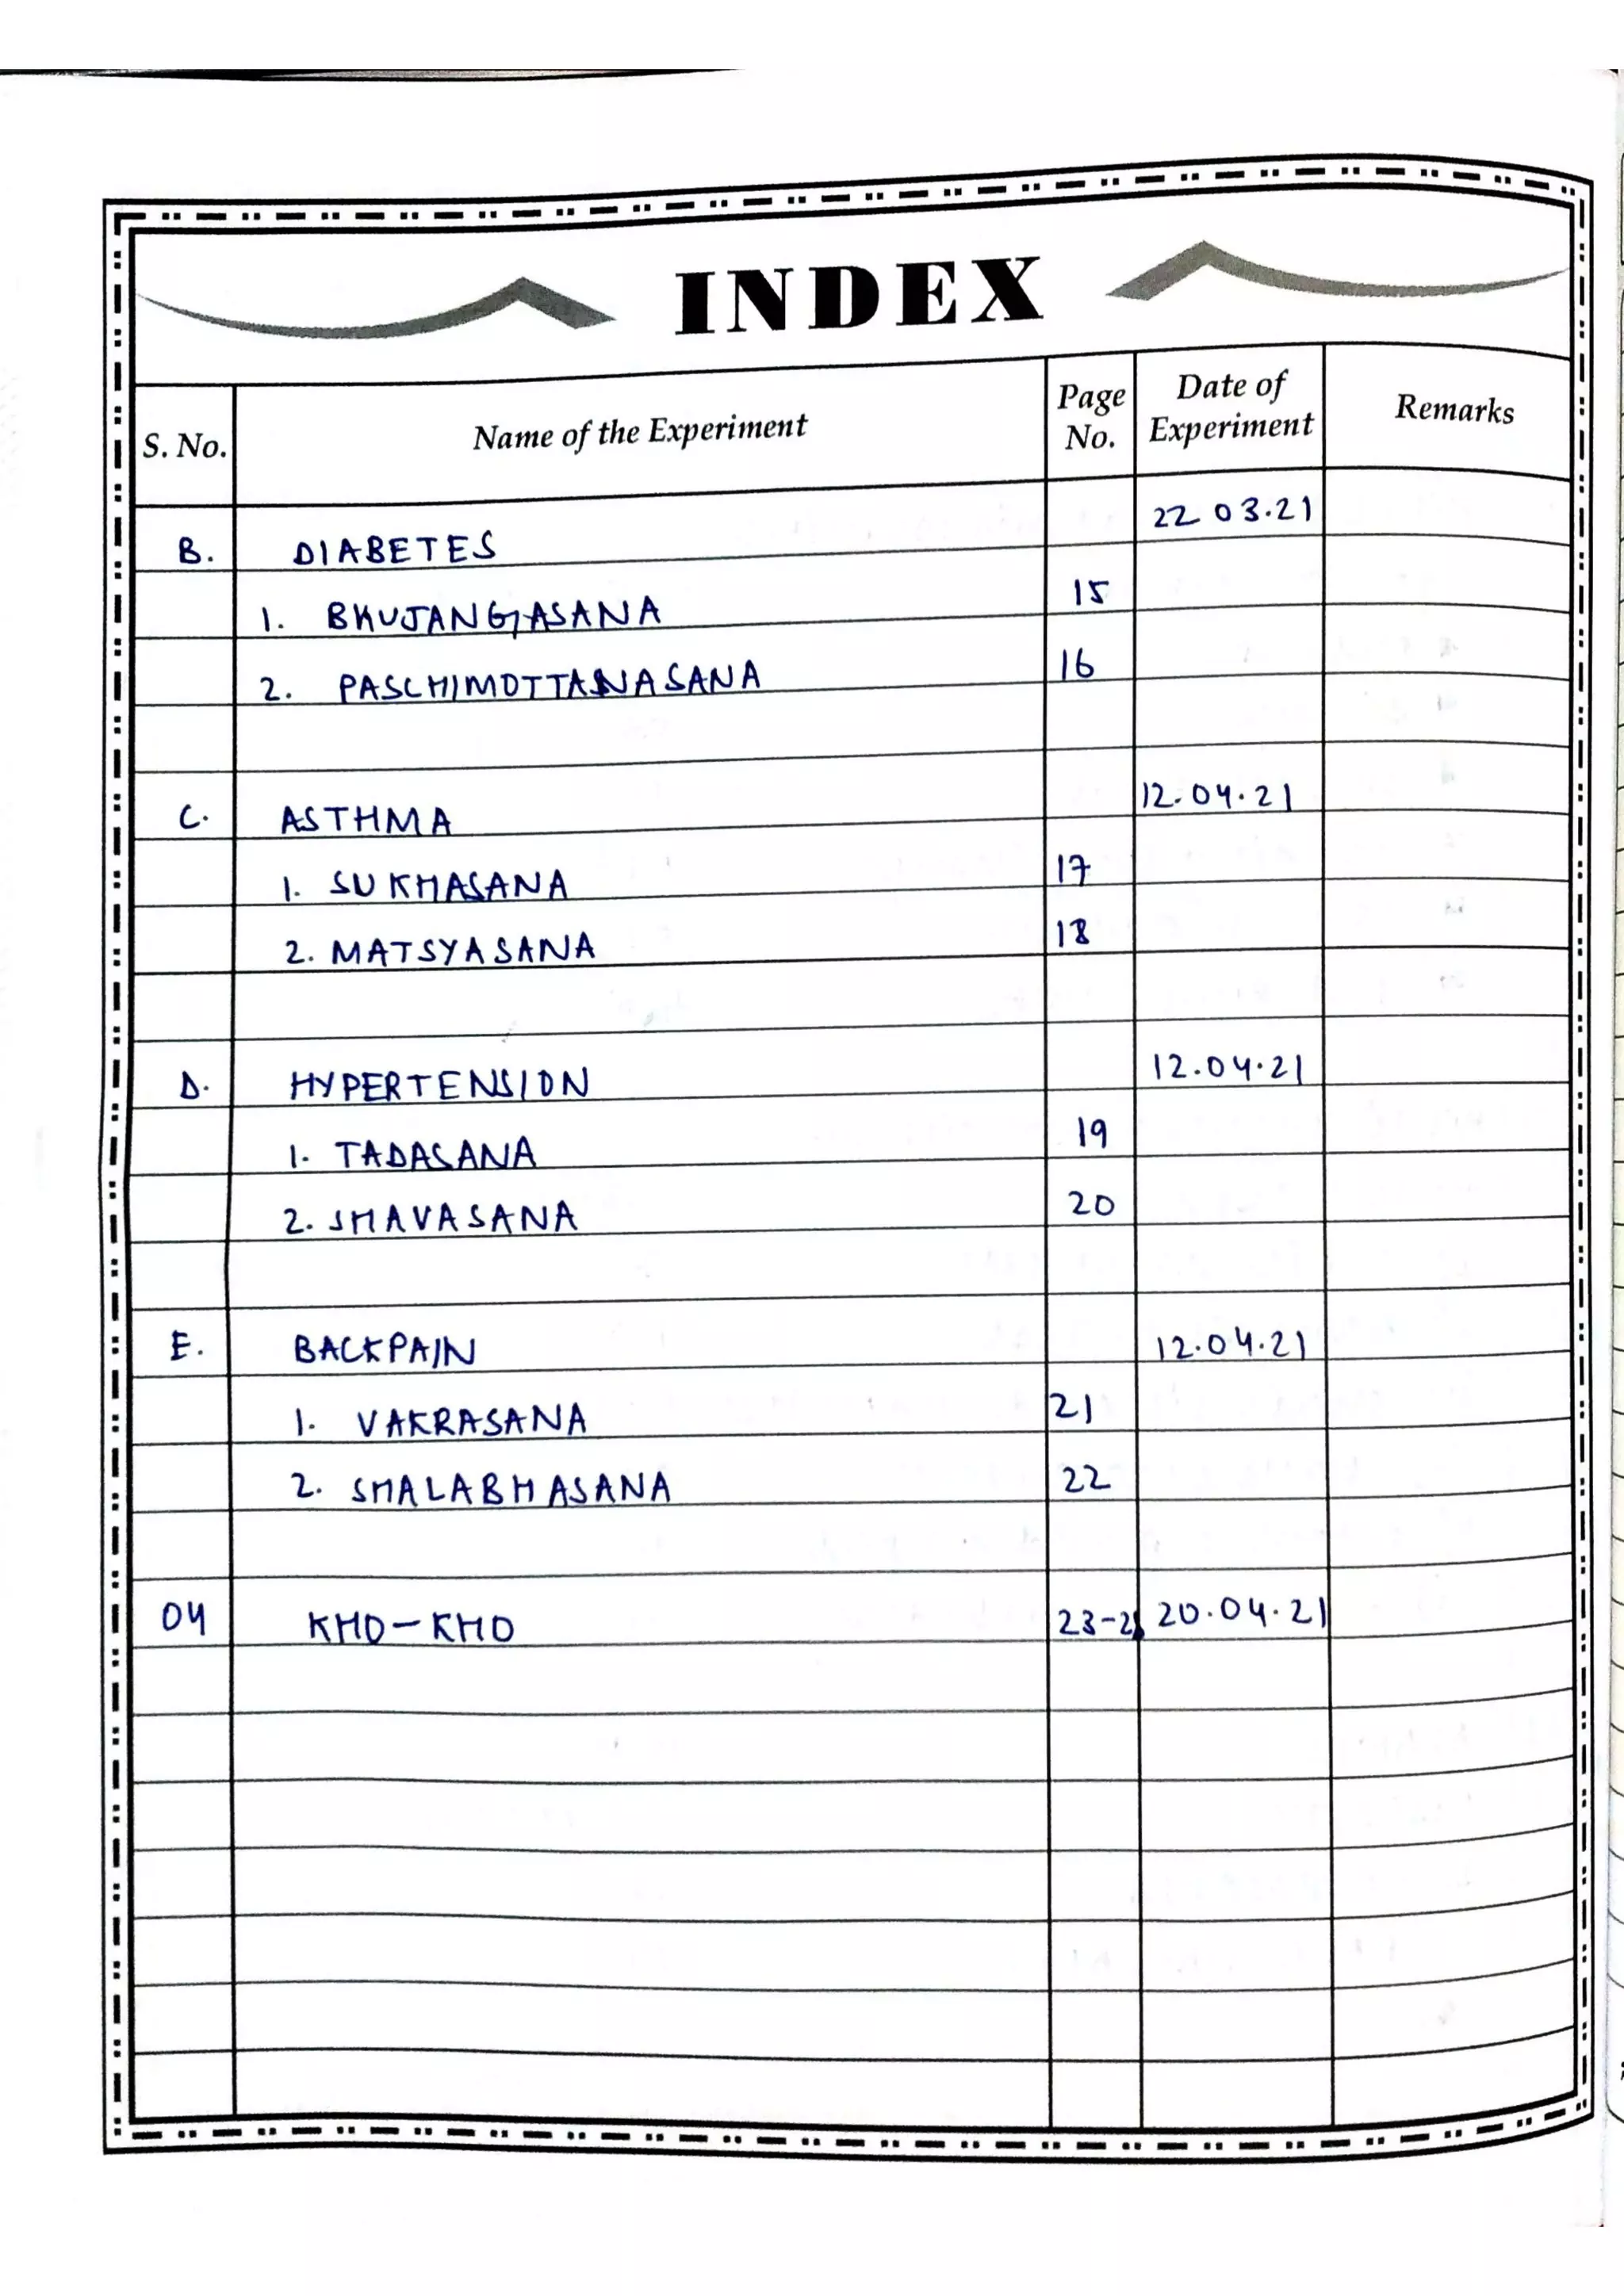 INDEX
S. No. Name of the Experiment Page No. Date of Experiment Remarks
B. DIABETES 22 03.21
1. BHUJANGASANA 15
2. PASCHIMOTTANASANA 16
C. ASTHMA 12.04.21
1. SUKHASANA 17
2. MATSYASANA 18
D. HYPERTENSION 12.04.21
1. TADASANA 19
2. SHAVASANA 20
E. BACKPAIN 12.04.21
1. VAKRASANA 21
2. SHALABHASANA 22
04 KHO-KHO 20.04.21